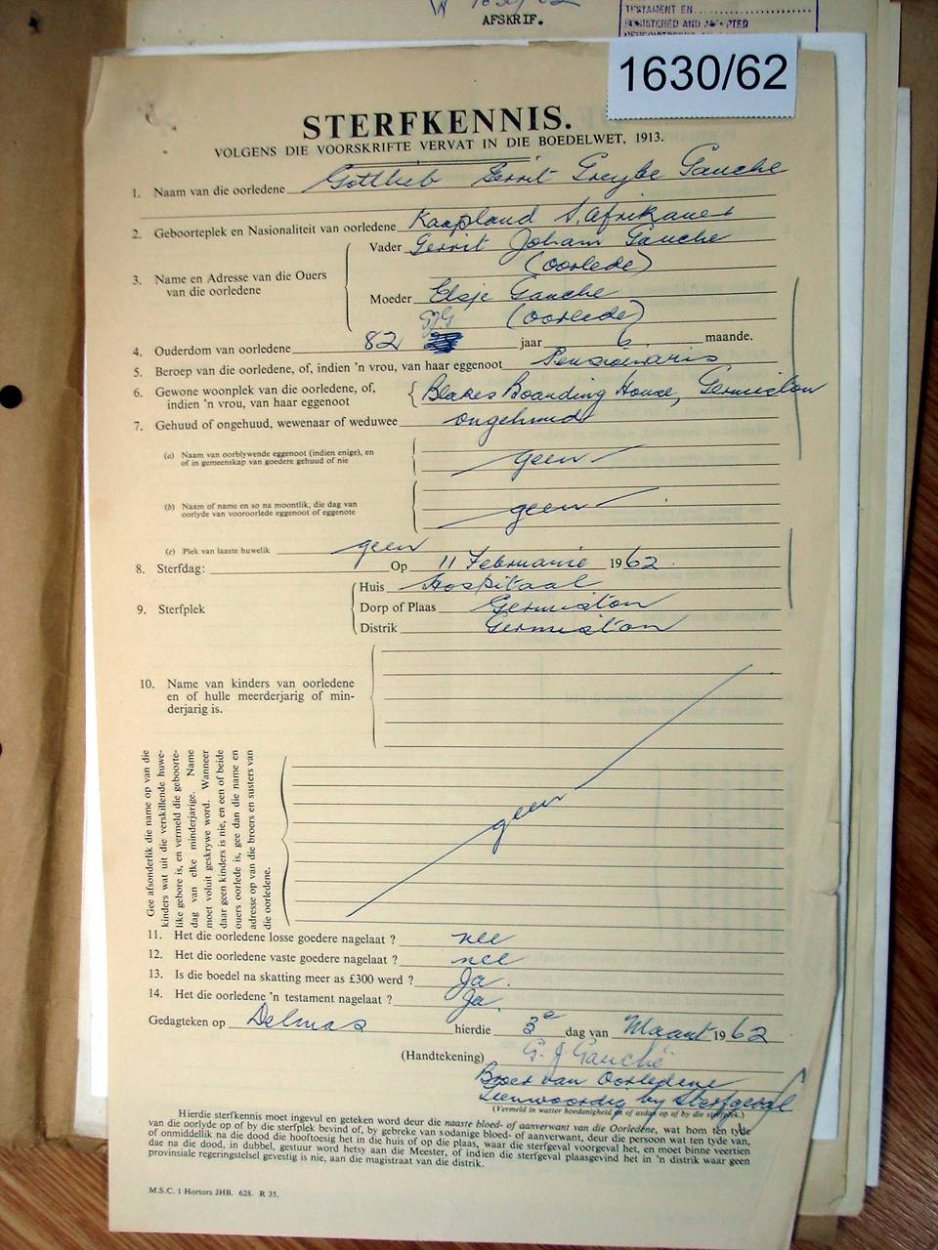 1630/62
AFSKRIF.
TESTAMENT EN
REGISTERED AND
STERFKENNIS.
VOLGENS DIE VOORSKRIFTE VERVAT IN DIE BOEDELWET, 1913.
1. Naam van die oorledene Gottlieb Gerrit Greybe Gauche
2. Geboorteplek en Nasionaliteit van oorledene Kaapland S. Afrikaner
3. Name en Adresse van die Ouers
van die oorledene
Vader Gerrit Joham Gauche
(oorlede)
Moeder Elsje Gauche
GJG (oorlede)
4. Ouderdom van oorledene 82 jaar 6 maande.
5. Beroep van die oorledene, of, indien 'n vrou, van haar eggenoot Pensioenaris
6. Gewone woonplek van die oorledene, of,
indien 'n vrou, van haar eggenoot
Blakes Boarding House, Germiston
7. Gehuud of ongehuud, wewenaar of weduwee ongehuud
(a) Naam van oorblywende eggenoot (indien enige), en
of in gemeenskap van goedere gehuud of nie
geen
(b) Naam of name en so na moontlik, die dag van
oorlyde van vooroorlede eggenoot of eggenote
geen
(c) Plek van laaste huwelik geen
8. Sterfdag: Op 11 Februarie 1962.
9. Sterfplek
Huis Hospitaal
Dorp of Plaas Germiston
Distrik Germiston
10. Name van kinders van oorledene
en of hulle meerderjarig of min-
derjarig is.
Gee afsonderlik die name op van die
kinders wat uit die verskillende huwe-
like gebore is, en vermeld die geboorte-
dag van elke minderjarige. Name
moet voluit geskrywe word. Wanneer
daar geen kinders is nie, en een of beide
ouers oorlede is, gee dan die name en
adresse op van die broers en susters van
die oorledene.
geen
11. Het die oorledene losse goedere nagelaat ? nee
12. Het die oorledene vaste goedere nagelaat ? nee
13. Is die boedel na skatting meer as £300 werd ? Ja.
14. Het die oorledene 'n testament nagelaat ? Ja.
Gedagteken op Delmas hierdie 3e dag van Maart 1962
(Handtekening) G. J Gauché
Broer van Oorledene
Teenwoordig by Sterfgeval
(Vermeld in watter hoedanigheid en of asdan op of by die sterfplek.)
Hierdie sterfkennis moet ingevul en geteken word deur die naaste bloed- of aanverwant van die Oorledene, wat hom ten tyde
van die oorlyde op of by die sterfplek bevind of, by gebreke van sodanige bloed- of aanverwant, deur die persoon wat ten tyde van,
of onmiddellik na die dood die hooftoesig het in die huis of op die plaas, waar die sterfgeval voorgeval het, en moet binne veertien
dae na die dood, in dubbel, gestuur word hetsy aan die Meester, of indien die sterfgeval plaasgevind het in 'n distrik waar geen
provinsiale regeringsetel gevestig is nie, aan die magistraat van die distrik.
M.S.C. 1 Hortors JHB. 628. R 35.